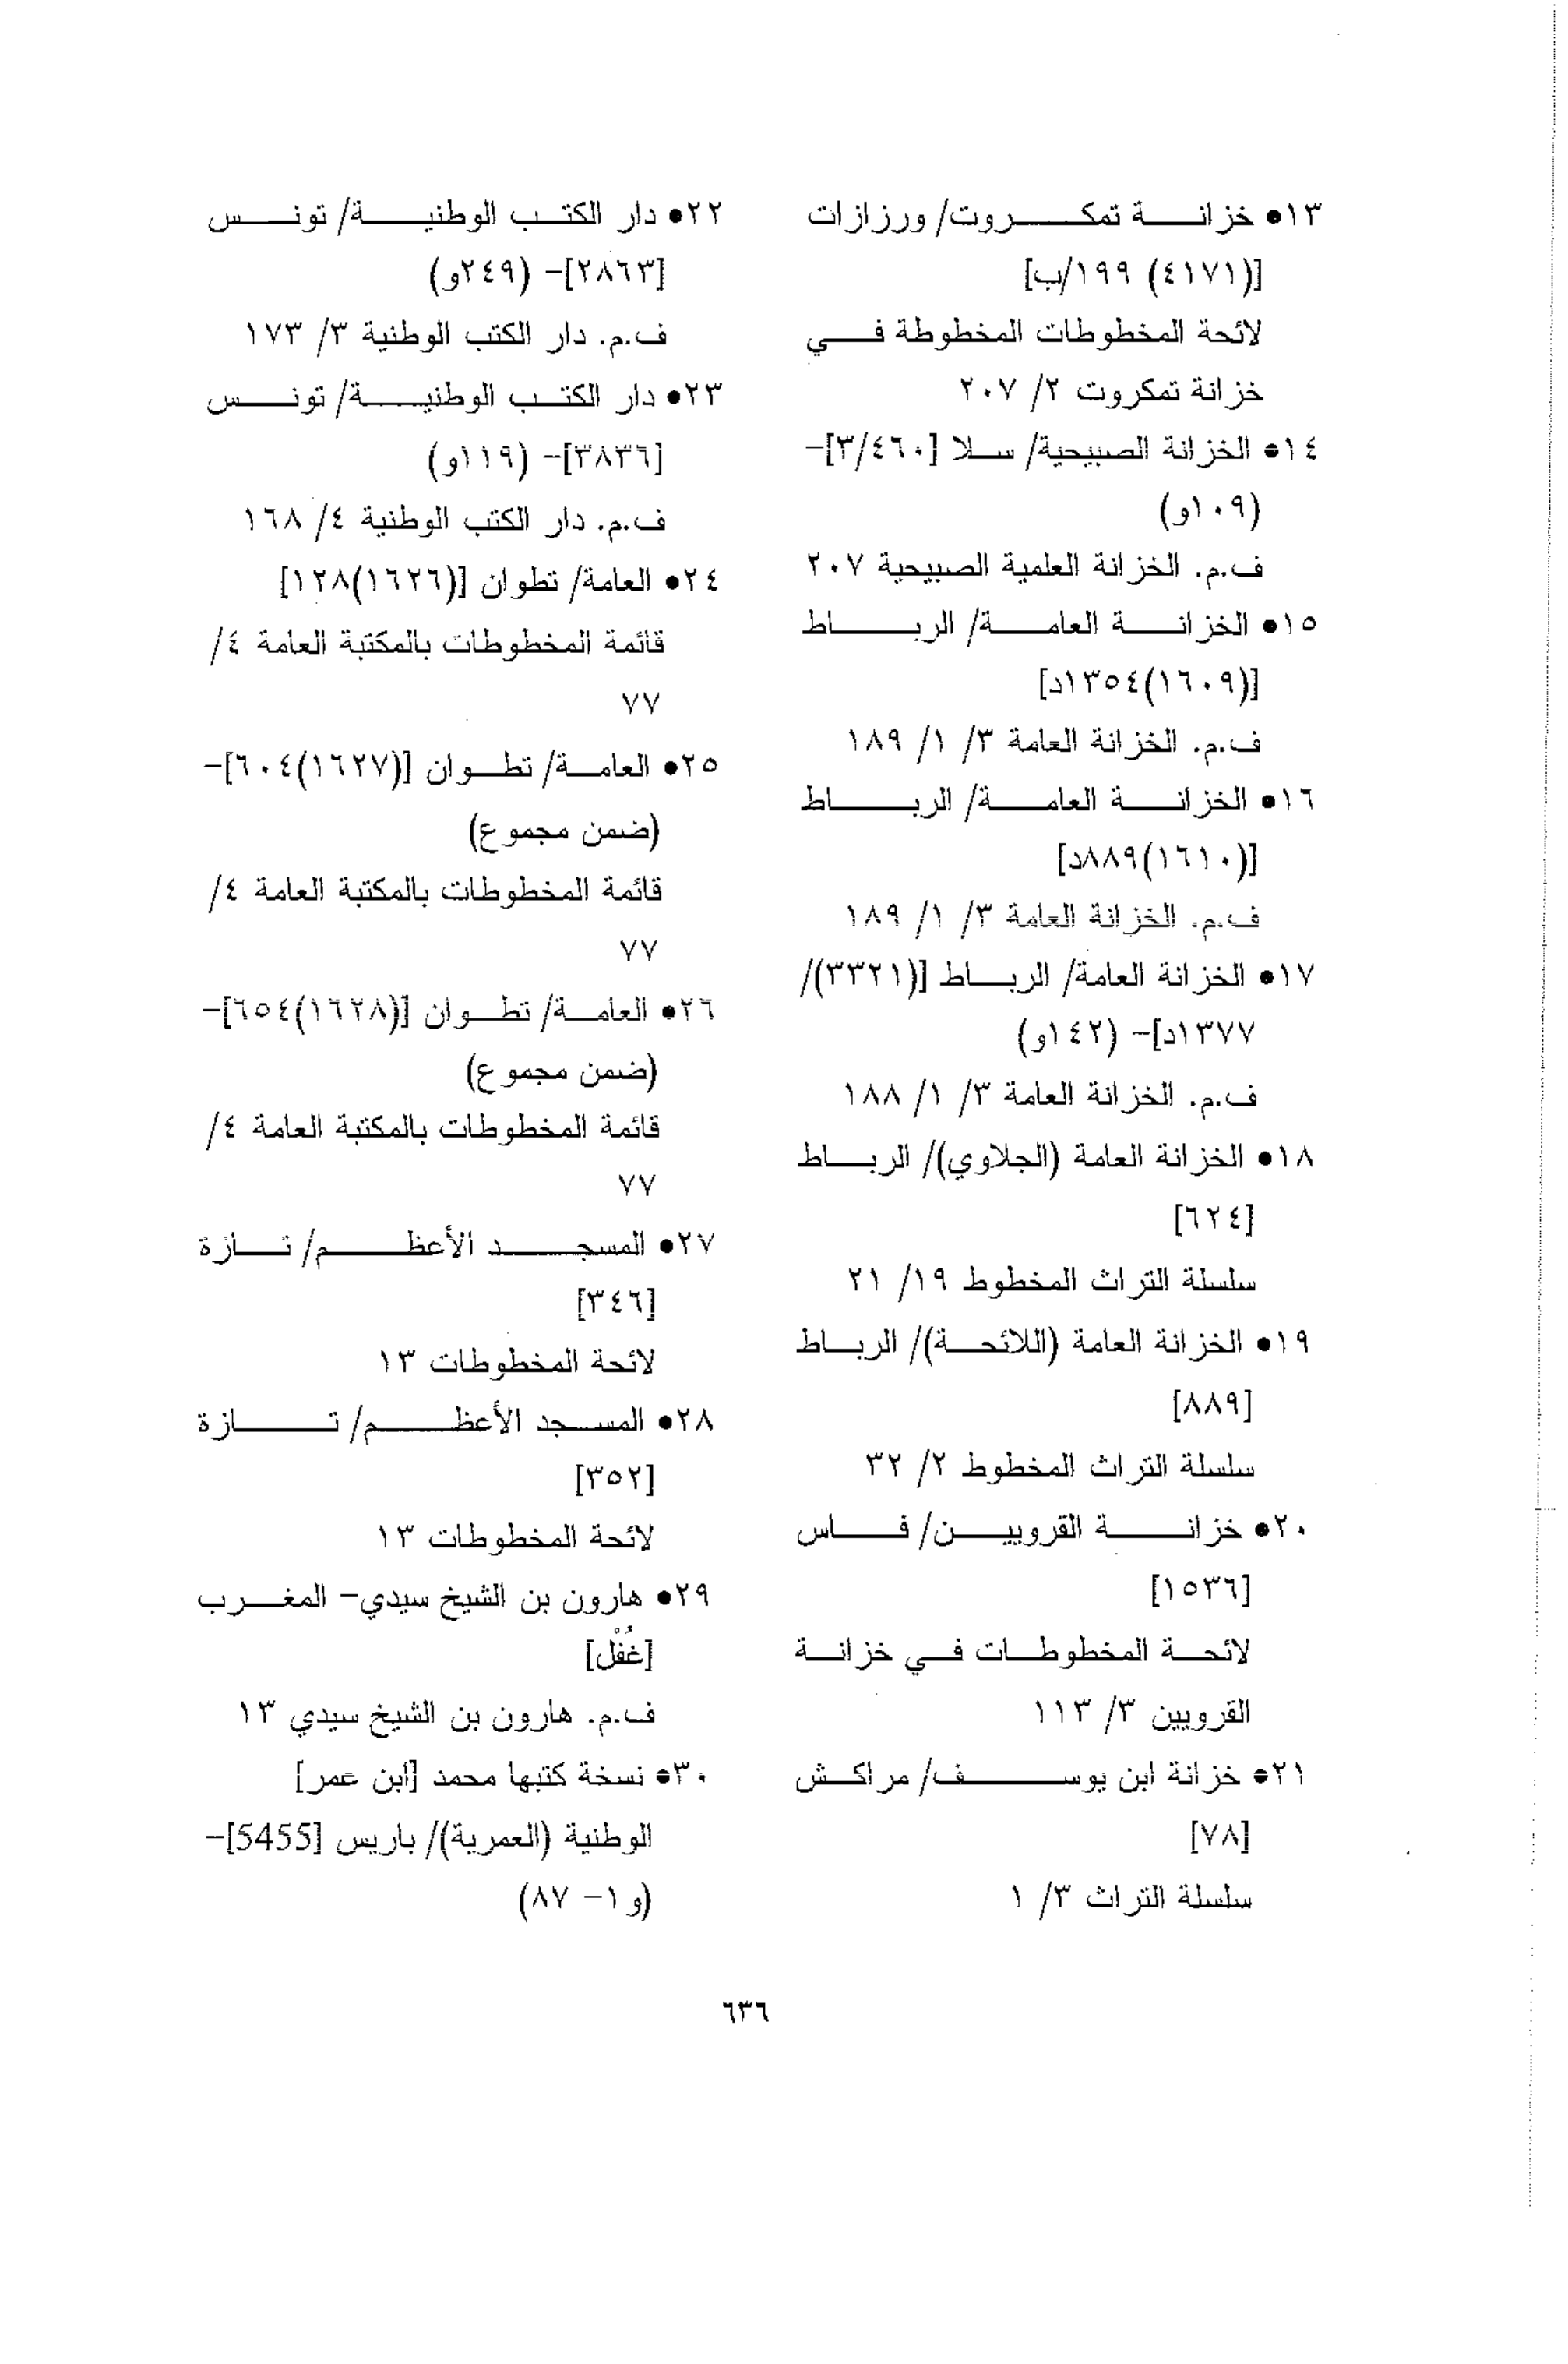 ١٣● خزانة تمكروت/ ورزازات
[(٤١٧١) ١٩٩/ب]
لائحة المخطوطات المخطوطة في
خزانة تمكروت ٢/ ٢٠٧
١٤● الخزانة الصبيحية/ سلا [٣/٤٦٠]-
(١٠٩و)
ف.م. الخزانة العلمية الصبيحية ٢٠٧
١٥● الخزانة العامة/ الرباط
[(١٦٠٩)١٣٥٤د]
ف.م. الخزانة العامة ٣/ ١/ ١٨٩
١٦● الخزانة العامة/ الرباط
[(١٦١٠)٨٨٩د]
ف.م. الخزانة العامة ٣/ ١/ ١٨٩
١٧● الخزانة العامة/ الرباط [(٣٣٢١)/
١٣٧٧د]- (١٤٢و)
ف.م. الخزانة العامة ٣/ ١/ ١٨٨
١٨● الخزانة العامة (الجلاوي)/ الرباط
[٦٢٤]
سلسلة التراث المخطوط ١٩/ ٢١
١٩● الخزانة العامة (اللائحة)/ الرباط
[٨٨٩]
سلسلة التراث المخطوط ٢/ ٣٢
٢٠● خزانة القرويين/ فاس
[١٥٣٦]
لائحة المخطوطات في خزانة
القرويين ٣/ ١١٣
٢١● خزانة ابن يوسف/ مراكش
[٧٨]
سلسلة التراث ٣/ ١
٢٢● دار الكتب الوطنية/ تونس
[٢٨٦٣]- (٢٤٩و)
ف.م. دار الكتب الوطنية ٣/ ١٧٣
٢٣● دار الكتب الوطنية/ تونس
[٣٨٣٦]- (١١٩و)
ف.م. دار الكتب الوطنية ٤/ ١٦٨
٢٤● العامة/ تطوان [(١٦٢٦)١٢٨]
قائمة المخطوطات بالمكتبة العامة ٤/
٧٧
٢٥● العامة/ تطوان [(١٦٢٧)٦٠٤]-
(ضمن مجموع)
قائمة المخطوطات بالمكتبة العامة ٤/
٧٧
٢٦● العامة/ تطوان [(١٦٢٨)٦٥٤]-
(ضمن مجموع)
قائمة المخطوطات بالمكتبة العامة ٤/
٧٧
٢٧● المسجد الأعظم/ تازة
[٣٤٦]
لائحة المخطوطات ١٣
٢٨● المسجد الأعظم/ تازة
[٣٥٢]
لائحة المخطوطات ١٣
٢٩● هارون بن الشيخ سيدي- المغرب
[غُفْل]
ف.م. هارون بن الشيخ سيدي ١٣
٣٠● نسخة كتبها محمد [ابن عمر]
الوطنية (العمرية)/ باريس [5455]-
(و ١- ٨٧)
٦٣٦